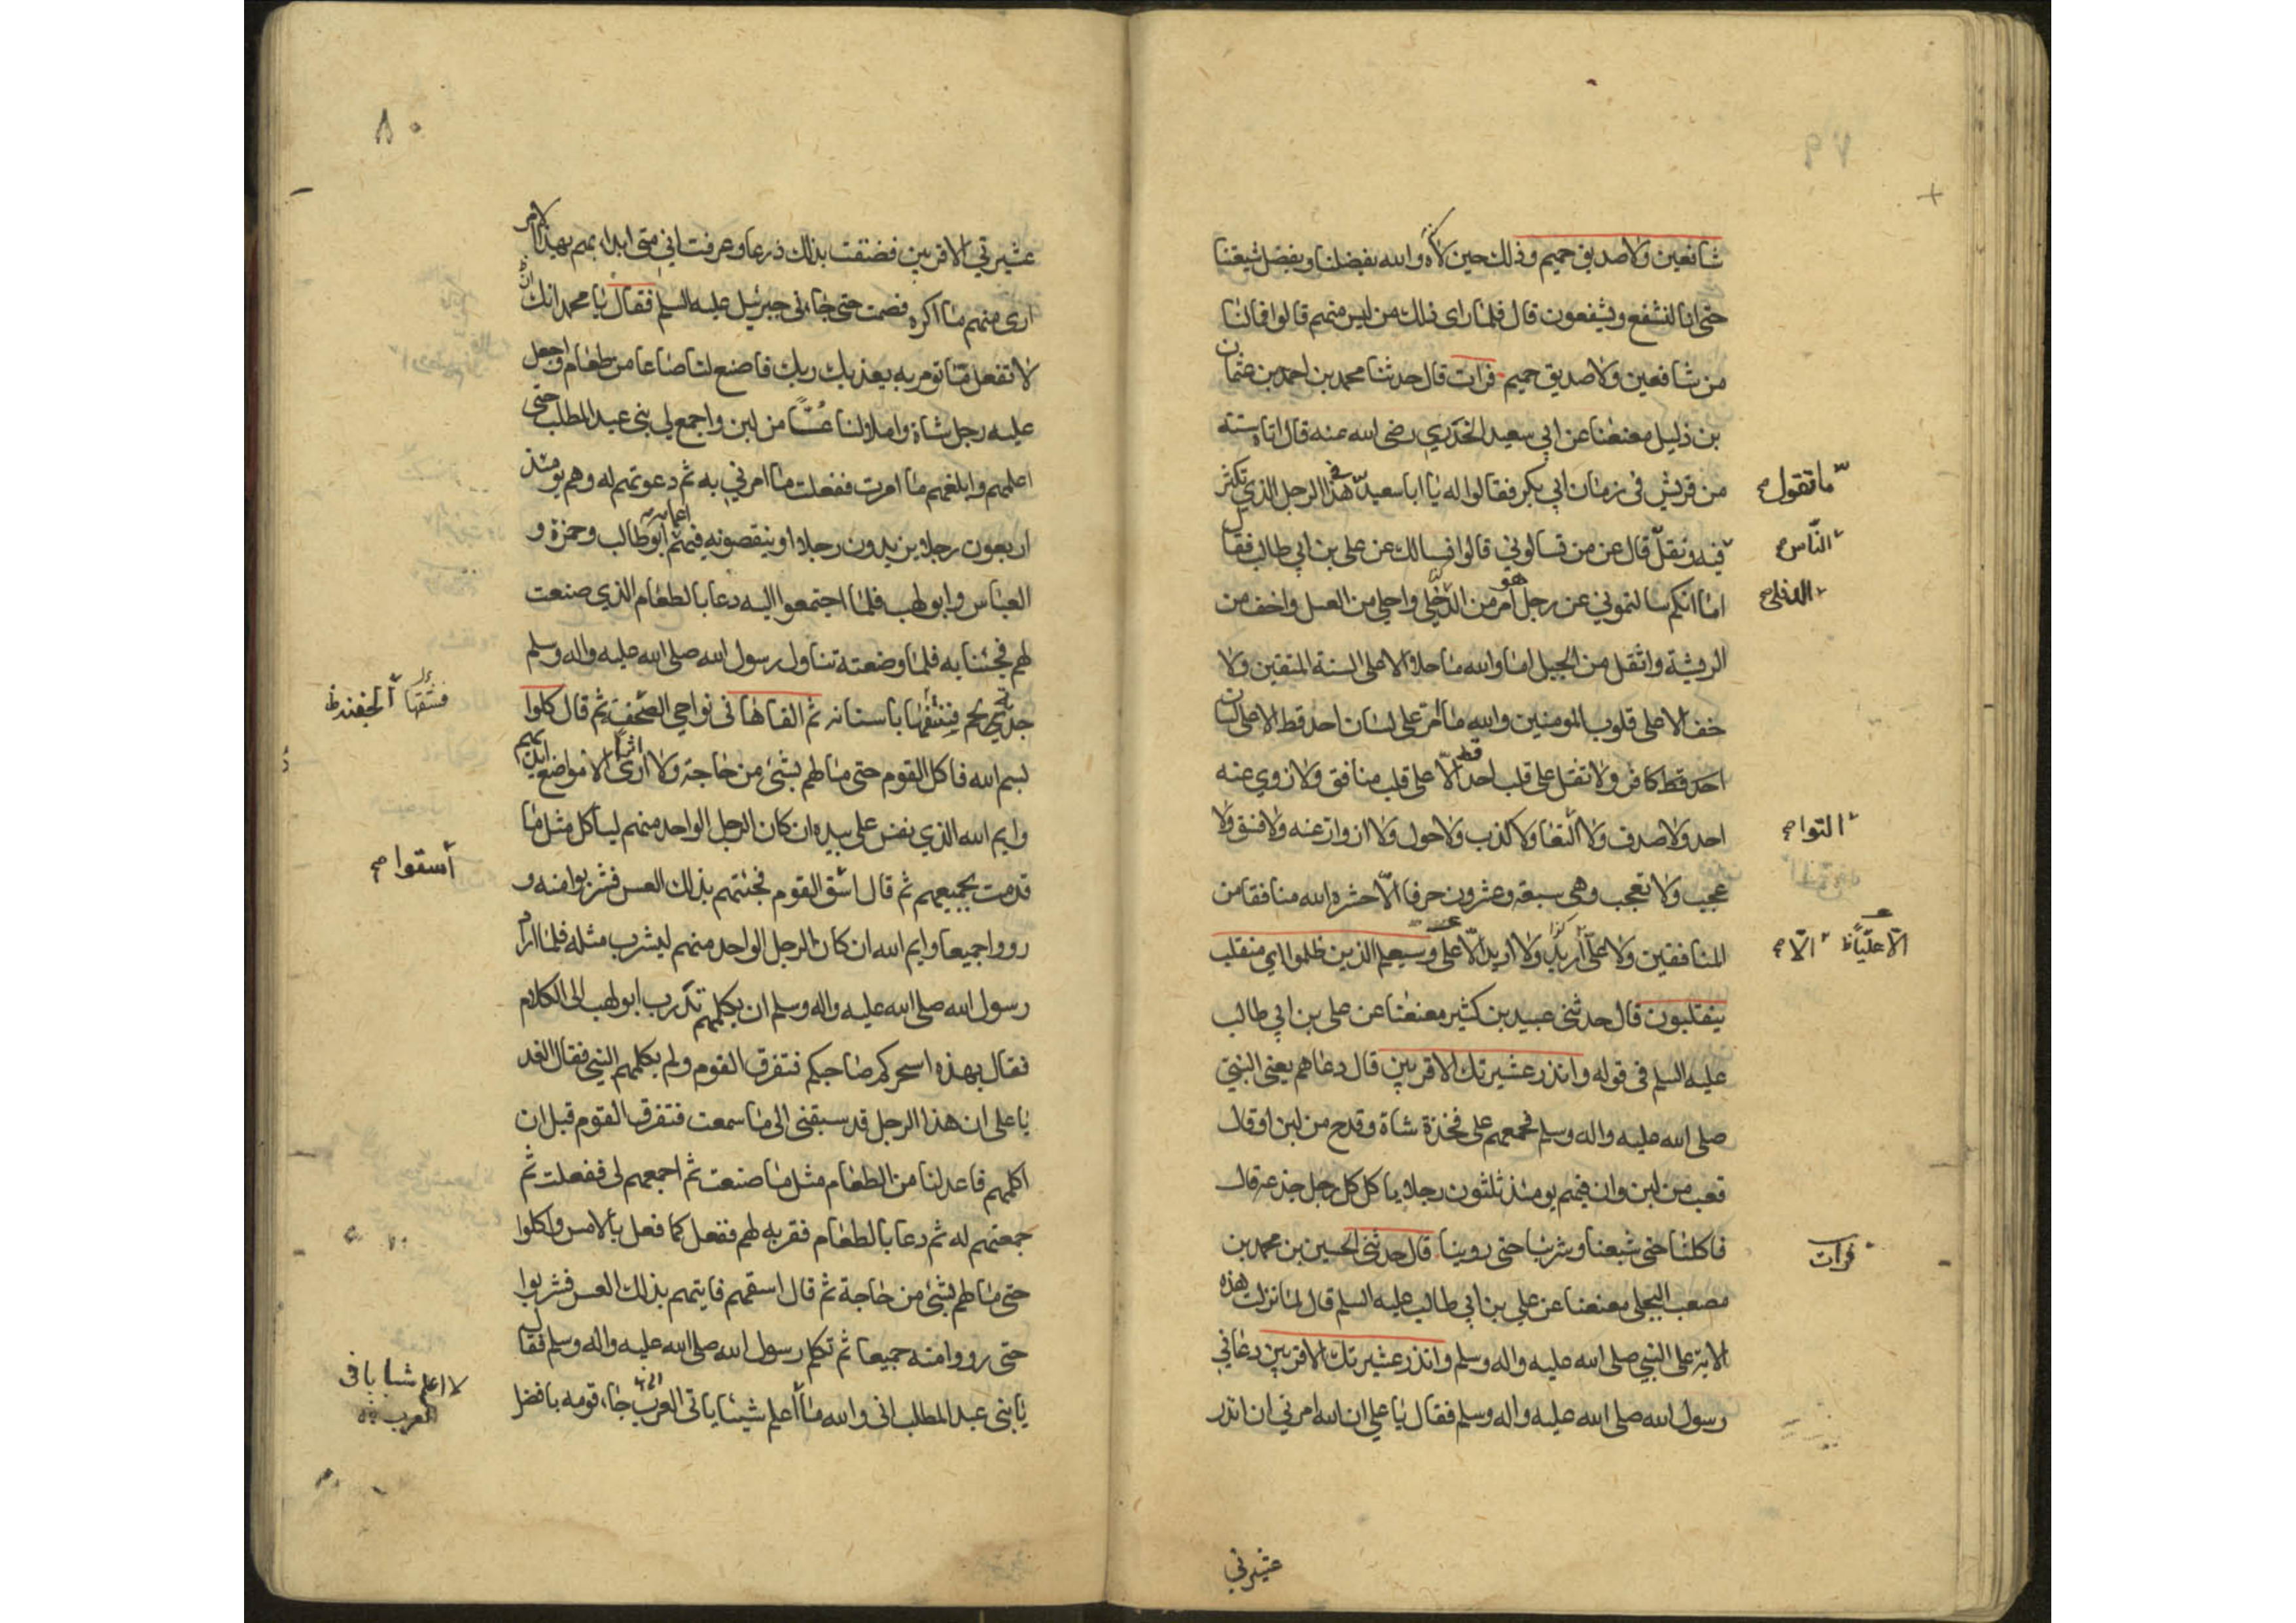 شافعين ولا صديق حميم وذلك حين والله يفضلنا ويفضل شيعتنا
حتى انا لنشفع ويشفعون قال فلما راى ذلك من ليس منهم قالوا فمالنا
من شافعين ولا صديق حميم فرات قال حدثنا محمد بن احمد بن عثمان
بن ذليل معنعنا عن ابي سعيد الخدري رضى الله عنه قال اتاه ستة
من قريش فى زمان ابي بكر فقالوا له يا ابا سعيد هذا الرجل الذي تكثر
ما تقول صح
فيه وتقل قال عن من تسالوني قالوا نسالك عن على بن ابي طالب فقال
الناس صح
اما انكم سالتموني عن رجل هو امر من الدفلى واحلى من العسل واخف من
الدفلى صح
الريشة واثقل من الجبل اما والله ما حلا الا على السنة المتقين ولا
خف الا على قلوب المومنين والله ما مر على لسان احد قط الا على لسان
احد قط كافر ولا ثقل على قلب احد قط الا على قلب منافق ولا زوي عنه
احد ولا صدف ولا التقا ولا كذب ولا حول ولا ازوار عنه ولا فسق ولا
التوا صح
عجب ولا تعجب وهى سبعة وعشرون حرفا الا حشره الله منافقا من
المنافقين ولا على اريد ولا اريد الا على وسيعلم الذين ظلموا اي منقلب
الا صح الا عليا
ينقلبون قال حدثنى عبيد بن كثير معنعنا عن على بن ابي طالب
عليه السلم فى قوله وانذر عشيرتك الاقربين قال دعاهم يعنى النبي
صلى الله عليه واله وسلم فجمعهم على فخذة شاة وقدح من لبن او قال
قعب من لبن وان فيهم يومئذ ثلثون رجلا ياكل كل رجل جذعة قال
فاكلنا حتى شبعنا وشربنا حتى روينا قال حدثنى الحسين بن محمد بن
فرات
مصعب البجلى معنعنا عن علي بن ابي طالب عليه السلم قال لما نزلت هذه
الاية على النبي صلى الله عليه واله وسلم وانذر عشيرتك الاقربين دعاني
رسول الله صلى الله عليه واله وسلم فقال يا على ان الله امرني ان انذر
عشيرتي
٨٠
عشيرتي الاقربين فضقت بذلك ذرعا وعرفت اني متى ابداهم بهذا الامر
ارى منهم ما اكره فصمت حتى جاءنى جبرئيل عليه السلم فقال يا محمد انك ان
لا تفعل ما تومر به يعذبك ربك فاصنع لنا صاعا من طعام واجعل
عليه رجل شاة واملا لنا عسا من لبن واجمع لي بنى عبد المطلب حتى
اعلمهم وابلغهم ما امرت ففعلت ما امرني به ثم دعوتهم له وهم يومئذ
اربعون رجلا يزيدون رجلا او ينقصونه فيهم اعمامه ابو طالب وحمزة و
العباس وابو لهب فلما اجتمعوا اليه دعا بالطعام الذي صنعت
لهم فجئنا به فلما وضعته تناول رسول الله صلى الله عليه واله وسلم
لحم باسنانه ثم القاها فى نواحي الصحف ثم قال كلوا
بسم الله فاكل القوم حتى ما لهم بشئ من حاجة ولا ارى الا مواضع ايديهم
وايم الله الذي نفس على بيده ان كان الرجل الواحد منهم لياكل مثل ما
قدمت بجميعهم ثم قال اسق القوم فجئتهم بذلك العس فشربوا منه و
اسقوا صح
رووا جميعا وايم الله ان كان الرجل الواحد منهم ليشرب مثله فلما اراد
رسول الله صلى الله عليه واله وسلم ان يكلمهم ابو لهب الى الكلام
فقال بهذه اسحركم صاحبكم فتفرق القوم ولم يكلمهم النبي فقال الغد
يا على ان هذا الرجل قد سبقنى الى ما سمعت فتفرق القوم قبل ان
اكلمهم فاعد لنا من الطعام مثل ما صنعت ثم اجمعهم لى ففعلت ثم
جمعتهم له ثم دعا بالطعام فقربه لهم ففعل كما فعل بالامس واكلوا
حتى ما لهم بشئ من حاجة ثم قال اسقهم فاتيتهم بذلك العس فشربوا
حتى رووا منه جميعا ثم تكلم رسول الله صلى الله عليه واله وسلم فقال
يا بنى عبد المطلب انى والله ما اعلم شيئا ياتى العرب جاء قومه بافضل
لا اعلم شبابا فى
العرب